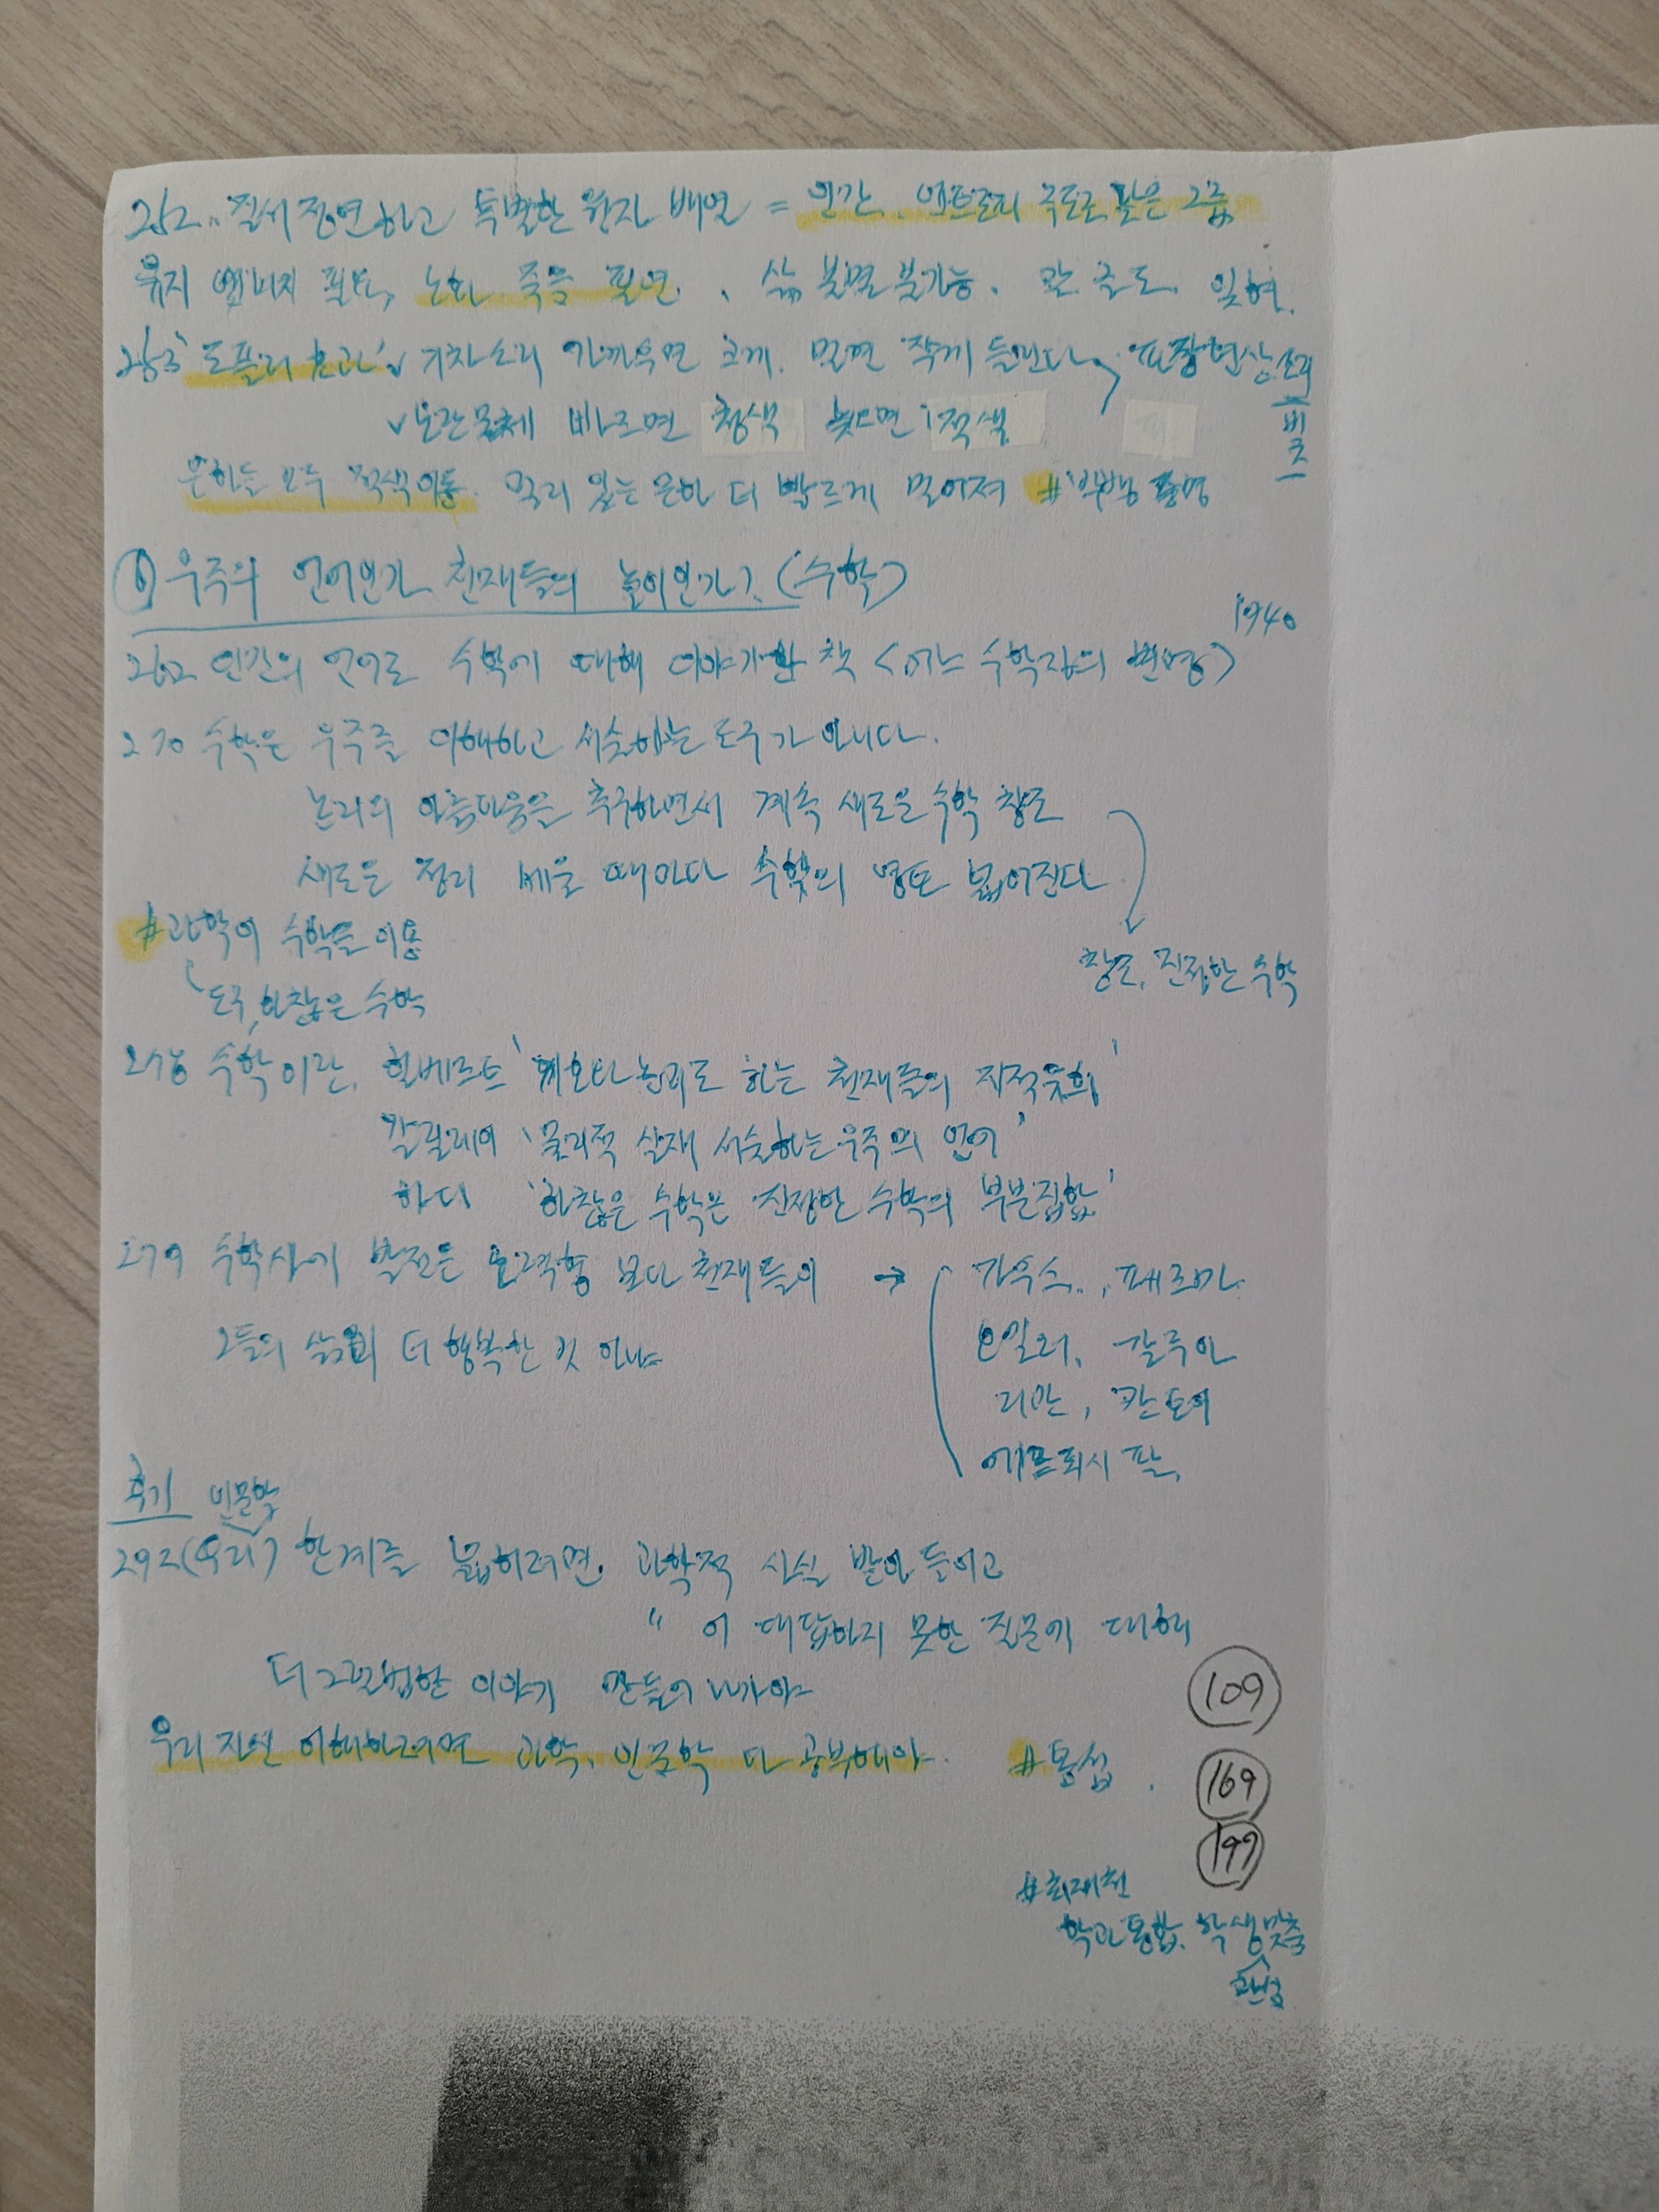 252. 질서정연하고 특별한 원자 배열 = 인간. 엔트로피 극도로 낮은 그룹
유지 에너지 필요, 노화 죽음 필연. 삶 불멸 불가능. 쓴 글도 잊혀.
253 '도플러 효과' ✓ 기차소리 가까우면 크게. 멀면 작게 들린다 파장현상 소리
빛
✓ 발광물체 빠르면 청색 늦으면 적색
은하들 모두 적색이동. 멀리 있는 은하 더 빠르게 멀어져 # 빅뱅 증명
⑥ 우주의 언어인가 천재들의 놀이인가? (수학)
1940
262 인간의 언어로 수학에 대해 이야기한 책 <어느 수학자의 변명>
270 수학은 우주를 이해하고 서술하는 도구가 아니다.
논리의 아름다움을 추구하면서 계속 새로운 수학 창조
새로운 정리 세울 때마다 수학의 영토 넓어진다
# 과학이 수학을 이용
창조, 진정한 수학
도구, 하찮은 수학
수학이란, 힐베르트 ' 논리로 하는 천재들의 지적유희'
갈릴레이 '물리적 실재 서술하는 우주의 언어'
하디 '하찮은 수학은 진정한 수학의 부분집합'
279 수학사에 발전은 노력형 보다 천재들이 → 가우스, 페르마
그들의 삶이 더 행복한 것 아냐 오일러, 갈루아
리만, 칸토어
에르되시 팔
후기 인문학
292 (우리) 한계를 넓히려면. 과학적 사실 받아들이고
" 이 대답하지 못한 질문에 대해
더 그럴법한 이야기 만들어 나가야
우리 자신 이해하려면 과학, 인문학 다 공부해야. # 통섭.
109
169
199
# 최재천
학과 통합. 학생 맞춤